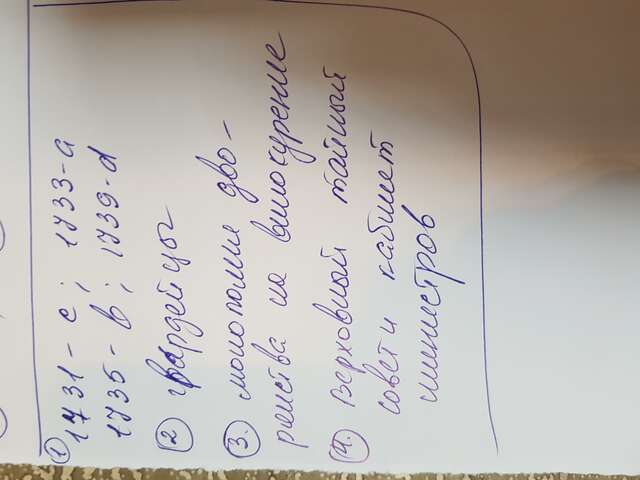 ① 1731 - с ; 1733 - а
1735 - в ; 1739 - d
② гвардейцы
③. монополия дво-
рянства на винокурение
④. Верховный тайный
совет и кабинет
министров